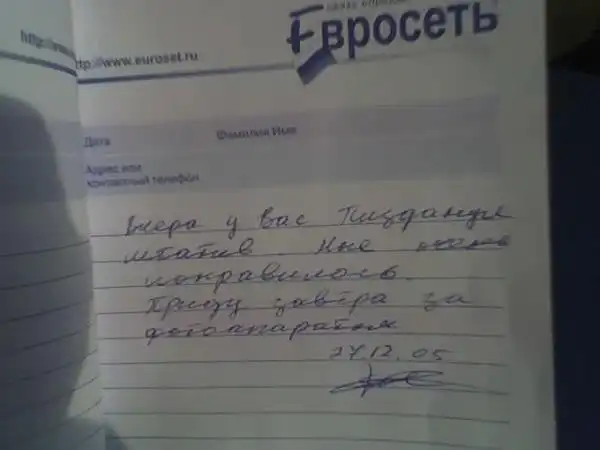 http://www
связь
Евросеть
ttp://www.euroset.ru
Дата
Фамилия Имя
Адрес или
контактный телефон
Вчера у вас Пизданул
штатив. Мне
понравилось.
Приду завтра за
фотоапаратом
27.12.05